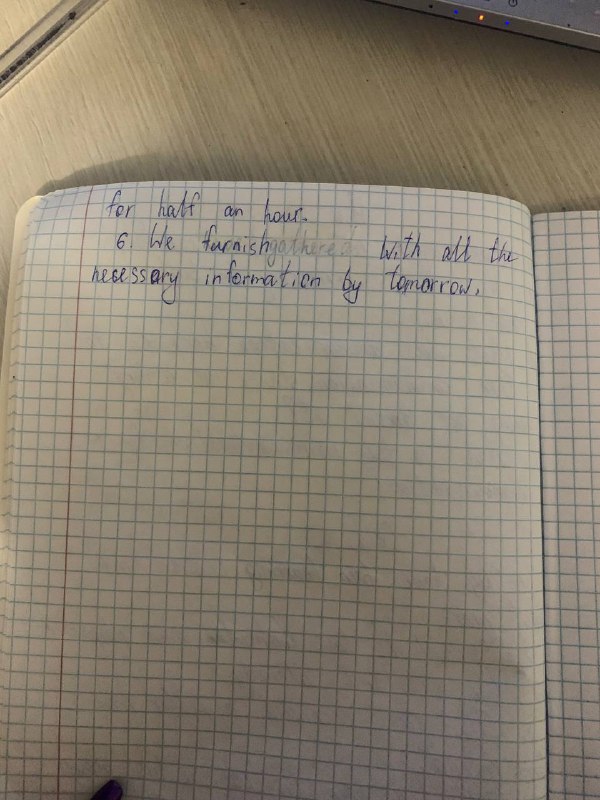 for half an hour.
6. We furnish gathered with all the
necessary information by tomorrow.